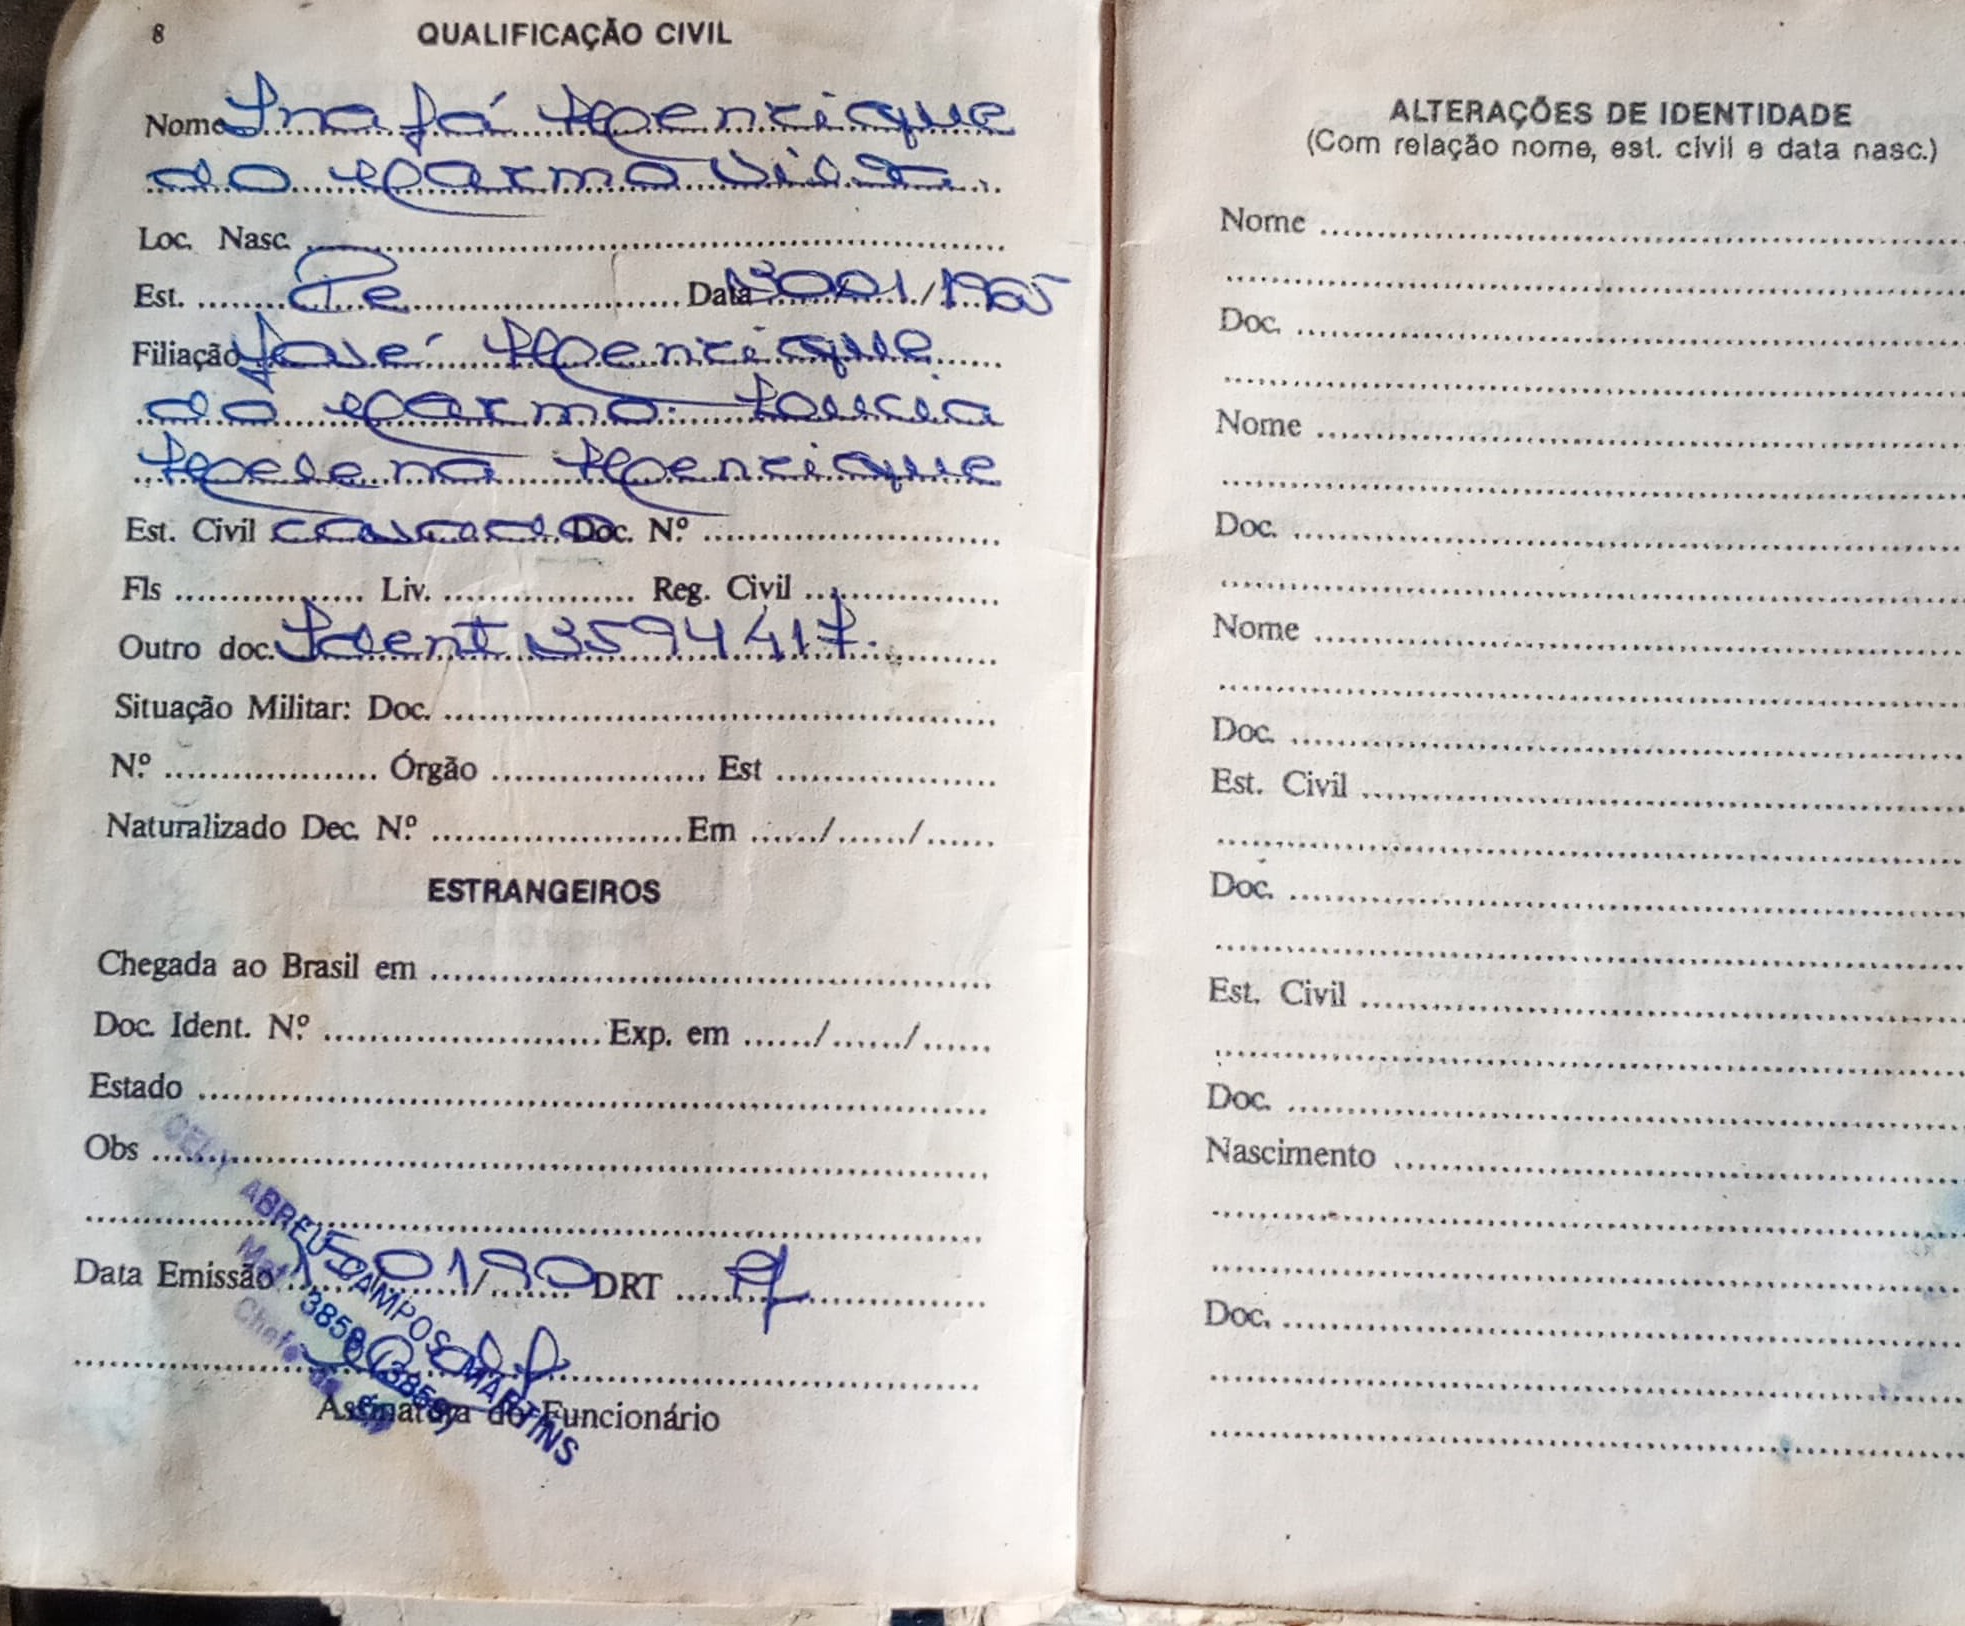 8 QUALIFICAÇÃO CIVIL
Nome Inajá Henrique
do Carmo Silva.
Loc. Nasc. ........
Est. Pe Data 13001/1965
Filiação José Henrique
do Carmo. Loucia
Helena Henrique
Est. Civil casado Doc. N.º ........
Fls ........ Liv. ........ Reg. Civil ........
Outro doc. Ident 3594417.
Situação Militar: Doc. ........
N.º ........ Órgão ........ Est ........
Naturalizado Dec. N.º ........ Em ....../....../......
ESTRANGEIROS
Chegada ao Brasil em ........
Doc. Ident. N.º ........ Exp. em ....../....../......
Estado ........
Obs ........
Data Emissão 15 01/90 DRT
Assinatura do Funcionário
ABREU CAMPOS MARTINS
ALTERAÇÕES DE IDENTIDADE
(Com relação nome, est. civil e data nasc.)
Nome ........
Doc. ........
Nome ........
Doc. ........
Nome ........
Doc. ........
Est. Civil ........
Doc. ........
Est. Civil ........
Doc. ........
Nascimento ........
Doc. ........